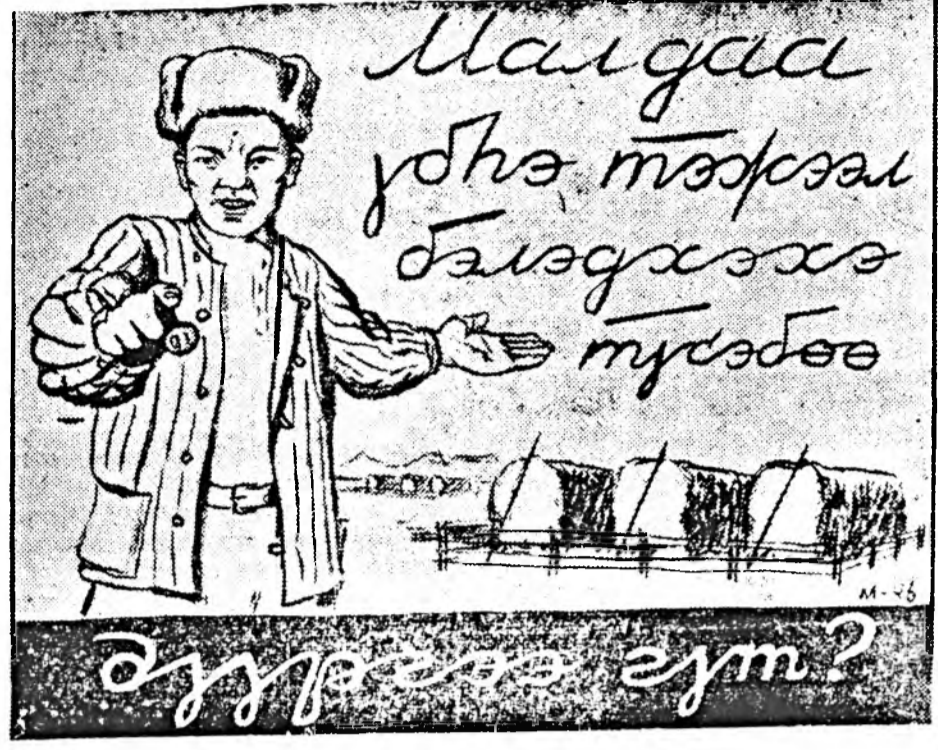 Малдаа
үбһэ тэжээл
бэлэдхэхэ
түсэбөө
м-46
Дүүргээ гүт?